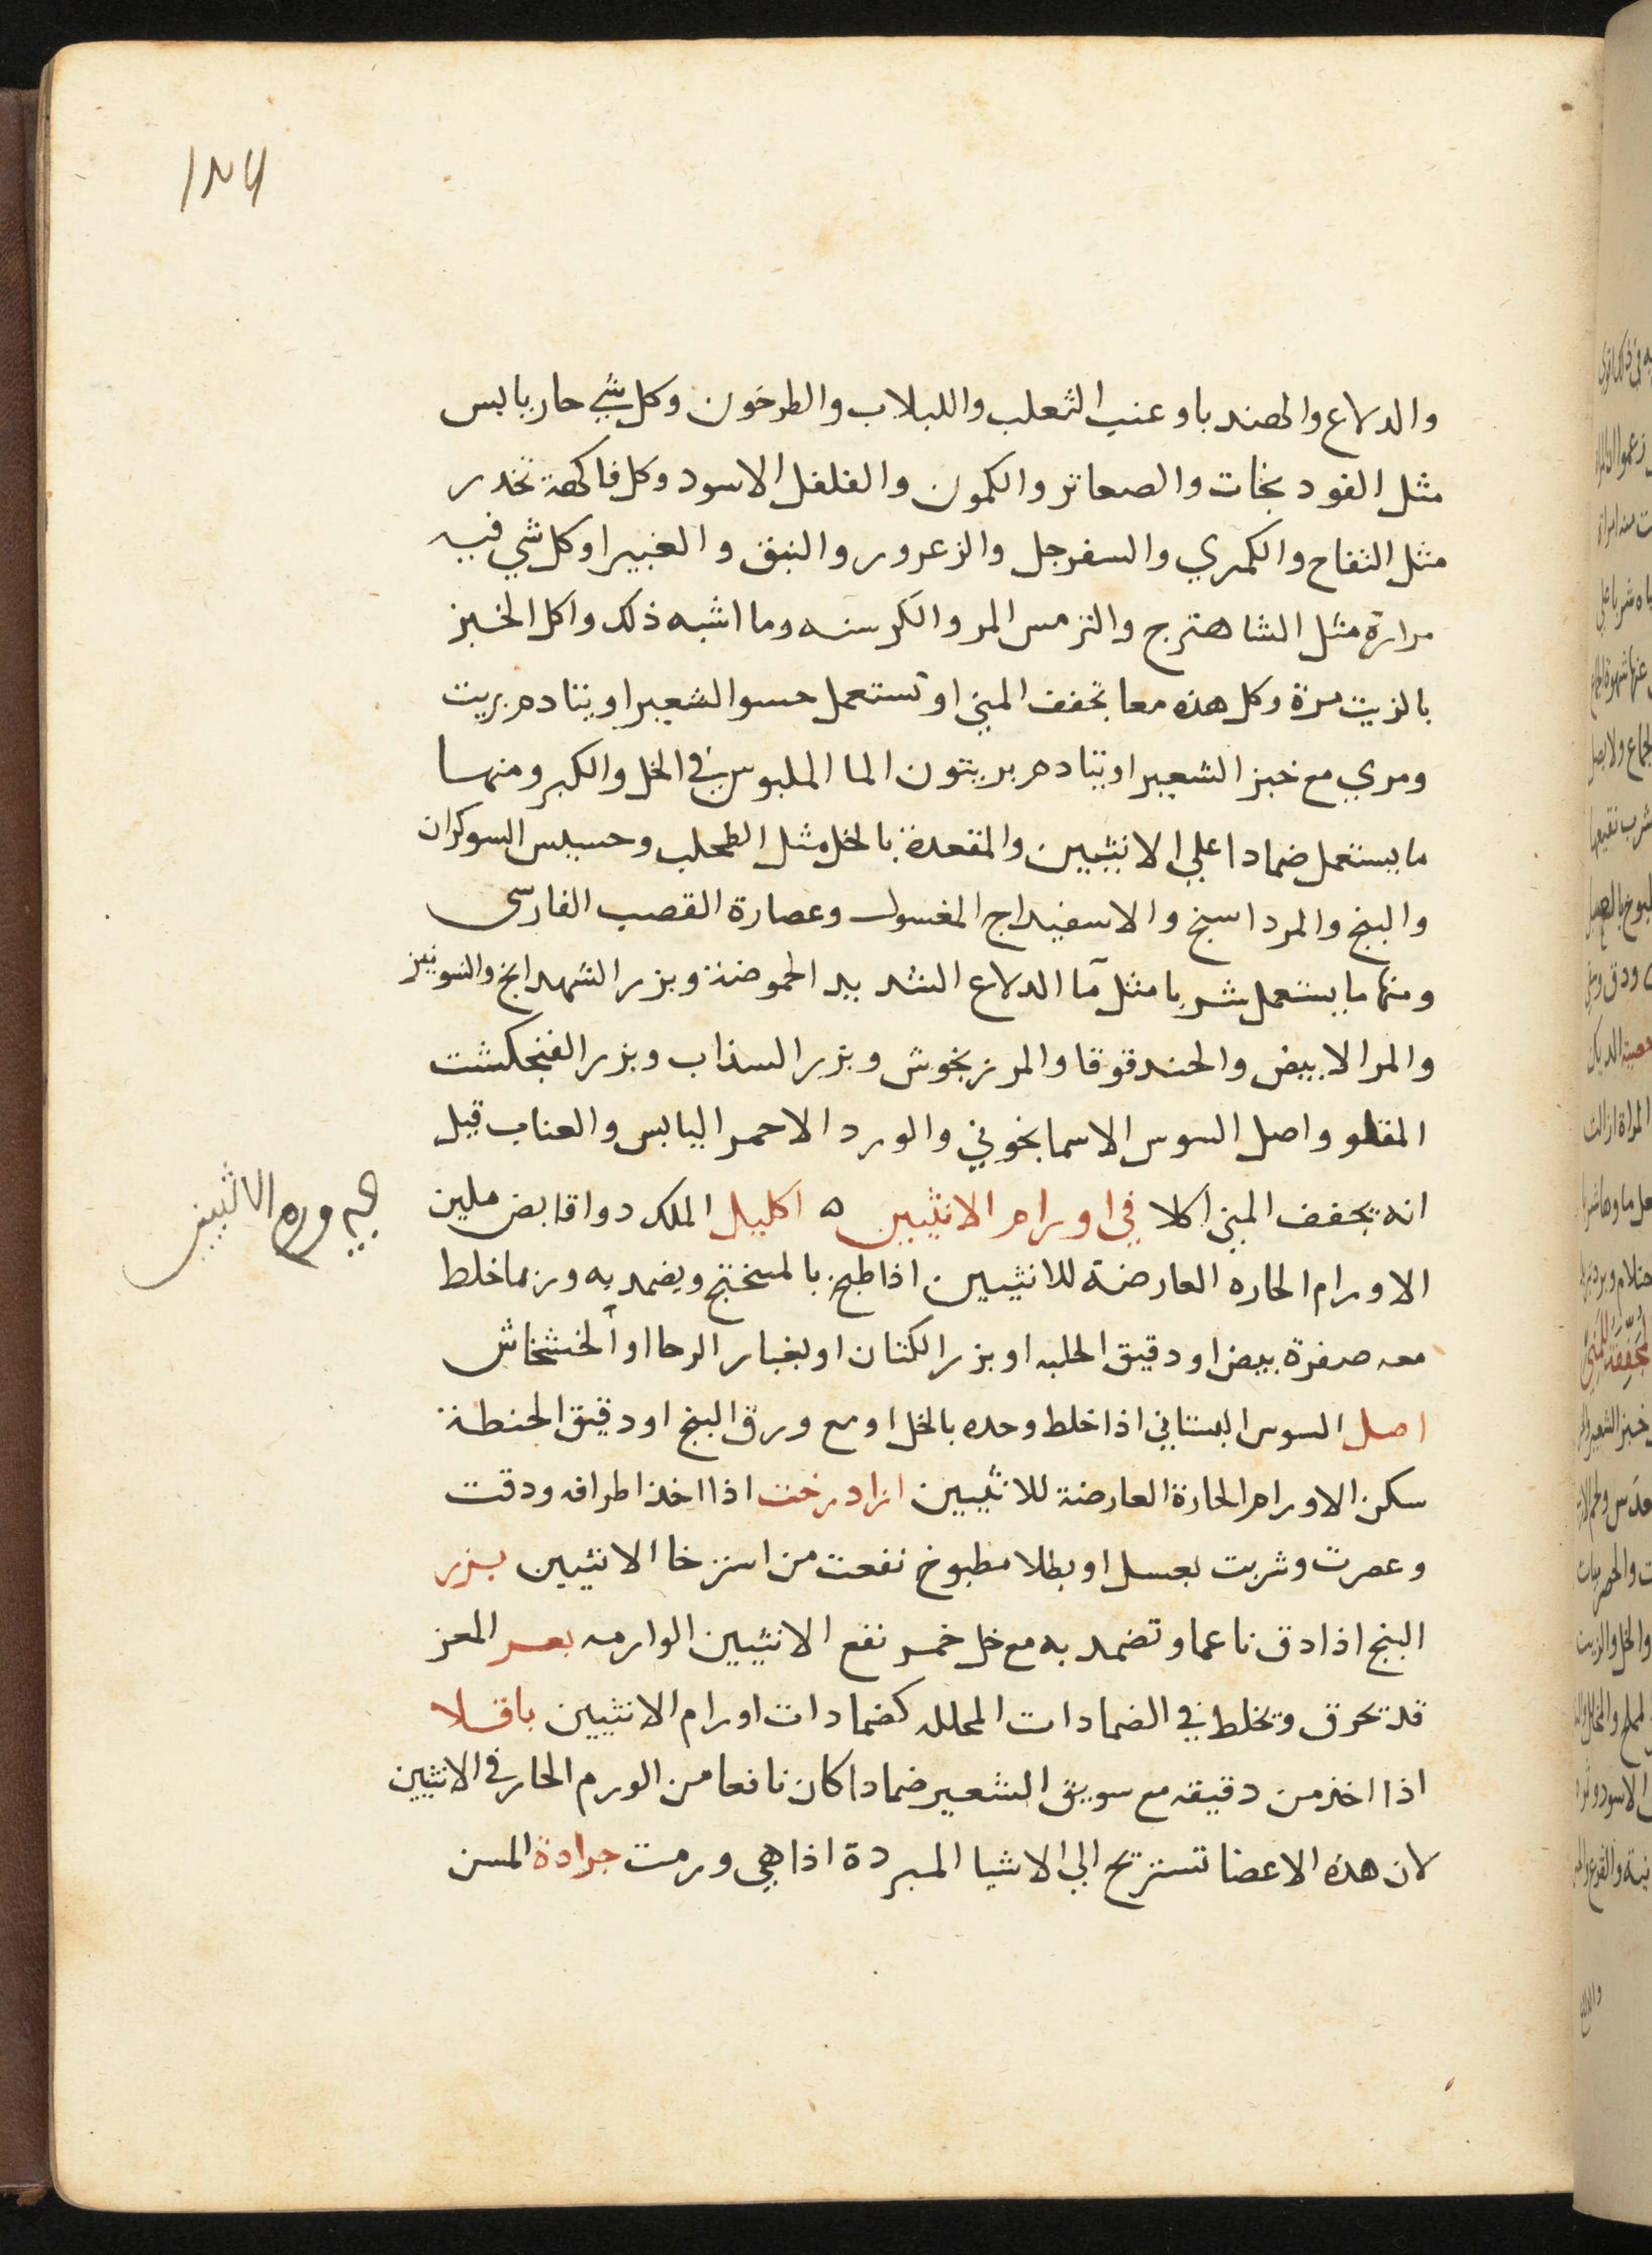 والدلاع والهندبا وعنب الثعلب واللبلاب والطرخون وكل شي حار يابس
مثل الفودنجات والصعاتر والكمون والفلفل الاسود وكل فاكهة تخدر
مثل التفاح والكمري والسفرجل والزعرور والنبق والغبيرا وكل شي فيه
مرارة مثل الشاهترج والترمس المر والكرسنه وما اشبه ذلك واكل الخبز
بالزيت مرة وكل هذه معا تجفف المني او تستعمل حسو الشعير او يتادم بزيت
ومري مع خبز الشعير او يتادم بزيتون الما الملبوس في الخل والكبر ومنها
ما يستعمل ضمادا علي الانثيين والمقعدة بالخل مثل الطحلب وحسيس السوكران
والبنج والمرداسنج والاسفيداج المغسول وعصارة القصب الفارسي
ومنها ما يستعمل شربا مثل ما الدلاع الشديد الحموضة وبزر الشهدانج والشونيز
والمر الابيض والحندقوقا والمرزنجوش وبزر السذاب وبزر الفنجكشت
المقلو واصل السوس الاسمانجوني والورد الاحمر اليابس والعناب قيل
انه يجفف المني اكلا في اورام الانثيين ه اكليل الملك دوا قابض ملين
ورم الانثيين
الاورام الحاره العارضة للانثيين اذا طبخ بالمبختج ويضمد به وربما خلط
معه صفرة بيض او دقيق الحلبه او بزر الكتان او بغبار الرحا او الخشخاش
اصل السوس البستاني اذا خلط وحده بالخل او مع ورق البنج او دقيق الحنطة
سكن الاورام الحارة العارضة للانثيين ازادرخت اذا اخذ اطرافه ودقت
وعصرت وشربت بعسل او بطلا مطبوخ نفعت من استرخا الانثيين بزر
البنج اذا دق ناعما وتضمد به مع خل خمر نفع الانثيين الوارمه بعر المعز
قد يحرق ويخلط في الضمادات المحلله كضمادات اورام الانثيين باقلا
اذا اخذ من دقيقه مع سويق الشعير ضمادا كان نافعا من الورم الحار في الانثيين
لان هذه الاعضا تستريح الي الاشيا المبردة اذا هي ورمت جرادة المسن